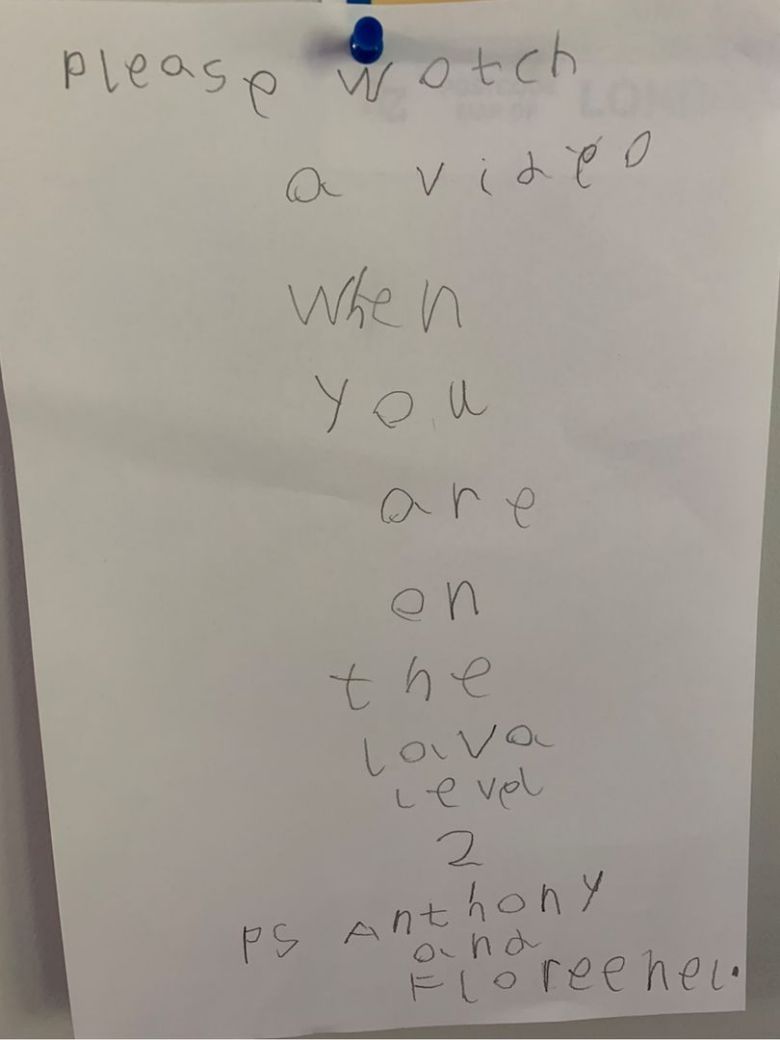 Please watch
a video
When
you
are
on
the
lava
level
2
PS Anthony
and
Floreenel.